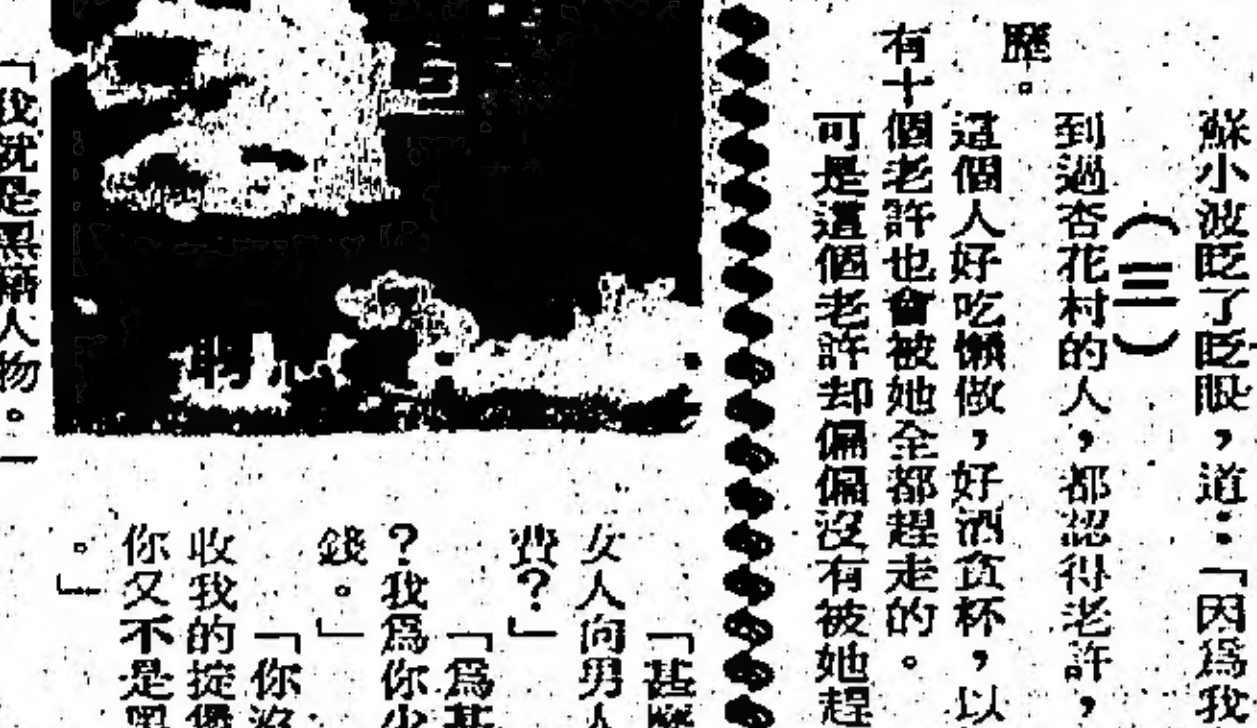 蘇小波眨了眨眼，道：「因爲我
（三）
到過杏花村的人，都認得老許，
歷。
這個人好吃懶做，好酒貪杯，以
有十個老許也會被她全都趕走的。
可是這個老許却偏偏沒有被她趕
「甚麽
女人向男人
費？」
「爲甚
？我爲你少
錢。」
「你沒
收我的掟煲
你又不是黑
。」
「我就是黑牌人物。」